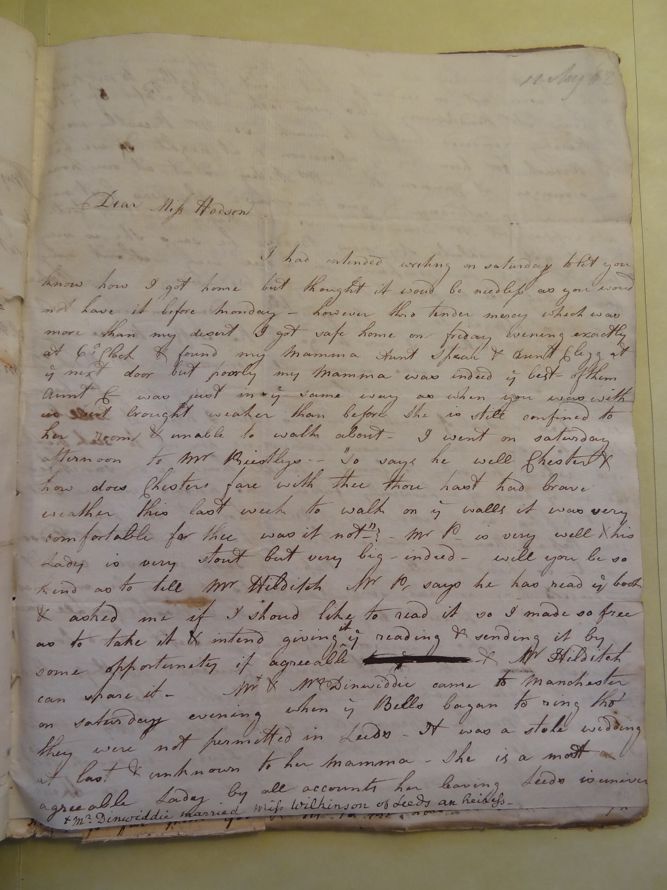 Dear Miss Hodson
I had intended writing on saturday to let you
know how I got home but thought it woud be needless as you woud
not have it before monday - however thro tender mercy which was
more than my desert I got safe home on friday evening exactly
at 6 oClock & found my Mamma Aunt Spear & Aunt Clegg at
ye next door but poorly my Mamma was indeed ye best of them
Aunt C was just in ye same way as when you was with
us brought weaker than before she is still confined to
her room & unable to walk about - I went on saturday
afternoon to Mr Priestlys -- "So says he well Chester &
how does Chester fare with thee thou hast had brave
weather this last week to walk on ye walls it was very
comfortable for thee was it not"? - Mr P - is very well & his
Lady is very stout but very big - indeed - will you be so
kind as to tell Mr Hilditch Mr P. says he has read ye book
& asked me if I should like to read it so I made so free
as to take it & intend giving it ye reading & sending it by
some opportunity if agreeable & Mr Hilditch
can spare it - Mr & Mrs Dinwiddie came to Manchester
on saturday evening when ye Bells began to ring tho'
they were not permitted in Leeds - It was a stole wedding
at last & unknown to her mamma - She is a most
agreeable Lady by all accounts her leaving Leeds is univer
+ Mr Dinwiddie married Miss Wilkinson of Leeds an heiress -